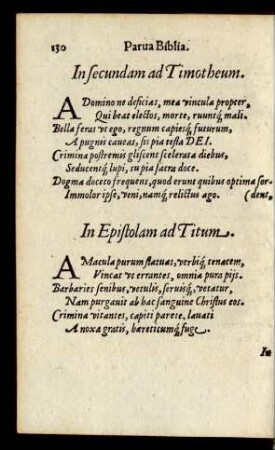 130 Parua Biblia.
In secundam ad Timotheum.
A Domino ne deficias, mea vincula propter,
Qui beat electos, morte, ruuntq́; mali.
Bella feras vt ego, regnum capiesq́; futurum,
A pugnis caueas, sis pia testa DEI.
Crimina postremis gliscent scelerata diebus,
Seducentq́; lupi, tu pia sacra doce.
Dogma doceto frequens, quod erunt quibus optima sor-
Immolor ipse, veni, namq́; relictus ago. (dent,
In Epistolam ad Titum.
A Macula purum statuas, verbiq́; tenacem,
Vincat vt errantes, omnia pura pijs.
Barbaries senibus, vetulis, seruisq́; vetatur,
Nam purgauit ab hac sanguine Christus eos.
Crimina vitantes, capiti parete, lauati
A noxa gratis, hæreticumq́; fuge.
In